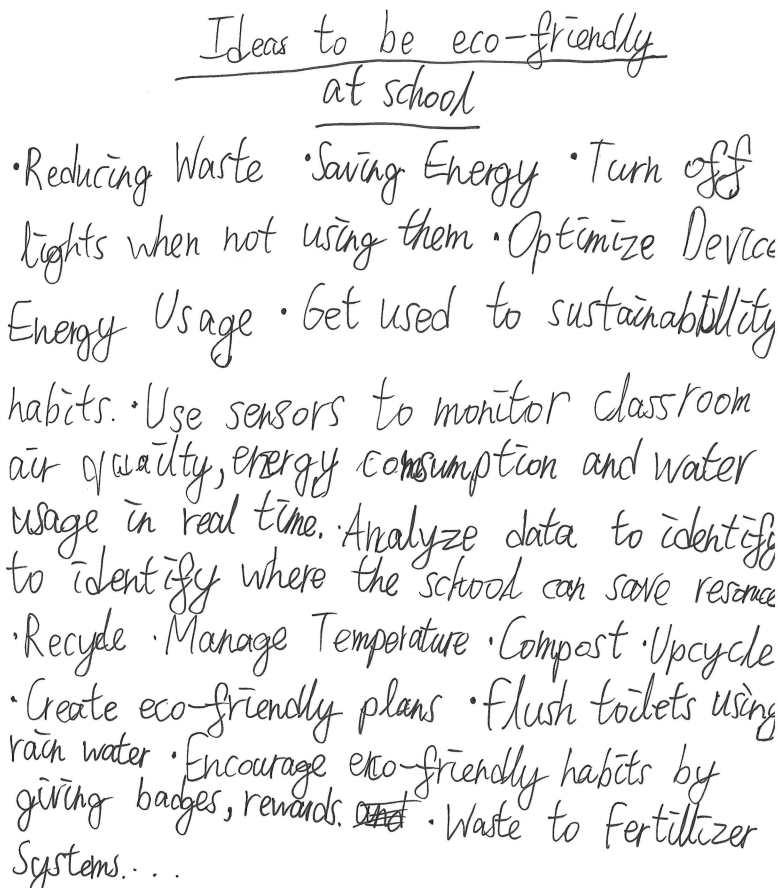 Ideas to be eco-friendly
at school
·Reducing Waste ·Saving Energy ·Turn off
lights when not using them ·Optimize Device
Energy Usage ·Get used to sustainabillity
habits. ·Use sensors to monitor classroom
air quailty, energy consumption and water
usage in real time. ·Analyze data to identify
to identify where the school can save resource
·Recycle ·Manage Temperature ·Compost ·Upcycle
·Create eco-friendly plans ·Flush toilets using
rain water ·Encourage eco-friendly habits by
giving badges, rewards. ·Waste to Fertillizer
Systems....